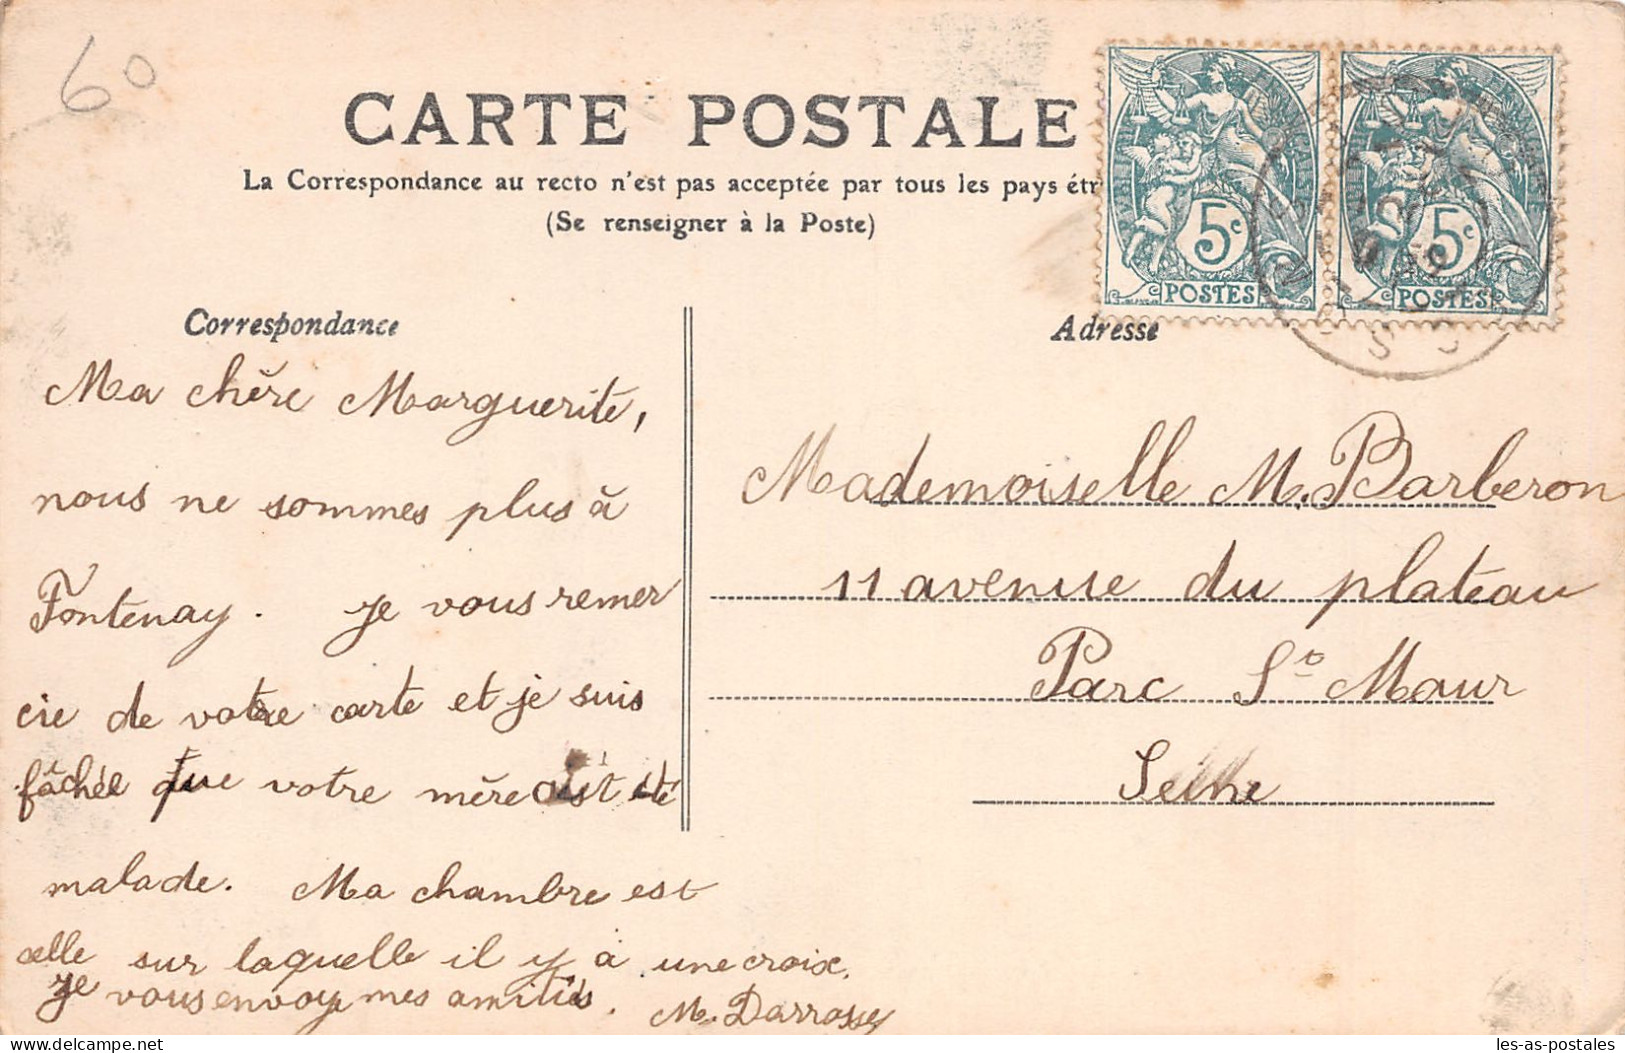 60
CARTE POSTALE
La Correspondance au recto n'est pas acceptée par tous les pays étr
(Se renseigner à la Poste)
5c
POSTES
5c
POSTES
Correspondance
Ma chère Marguerite,
nous ne sommes plus à
Fontenay. Je vous remer
cie de votre carte et je suis
fâchée que votre mère ait été
malade. Ma chambre est
celle sur laquelle il y a une croix.
Je vous envoye mes amitiés.
M. Darrasse
Adresse
Mademoiselle M. Barberon
11 avenue du plateau
Parc St Maur
Seine
delcampe.net
les-as-postales